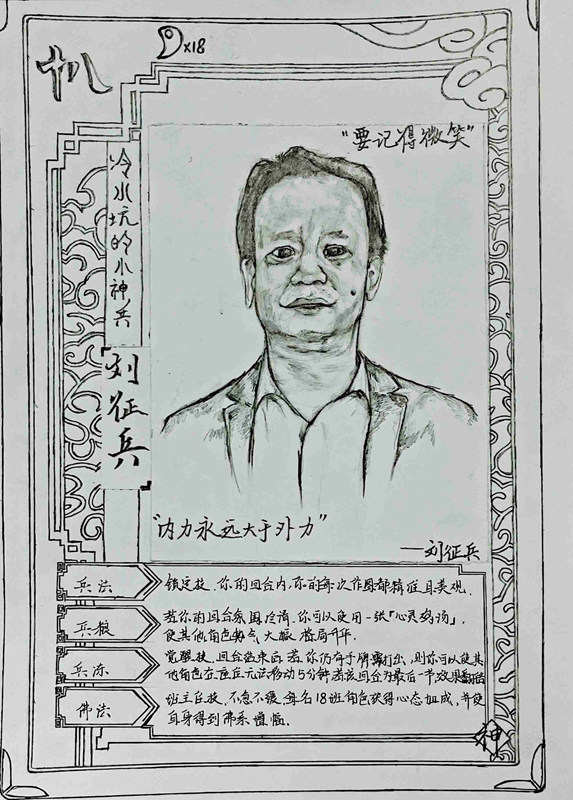 ×18
机
"要记得微笑"
冷水坑的小神兵
刘征兵
"内力永远大于外力"
——刘征兵
兵法
锁定技,你的回合内,你的每次作图都精准且美观.
兵粮
若你的回合氛围冷清,你可以使用一张「心灵鸡汤」,
使其他角色勇气、大振、格局升华.
兵冻
觉醒技,回合结束后,若你仍有手牌需打出,则你可以使其
他角色在座位无法移动5分钟,若该回合为最后一节效果翻倍
佛法
班主任技,不急不缓,每名18班角色获得心态加成,并使
自身得到佛系
神